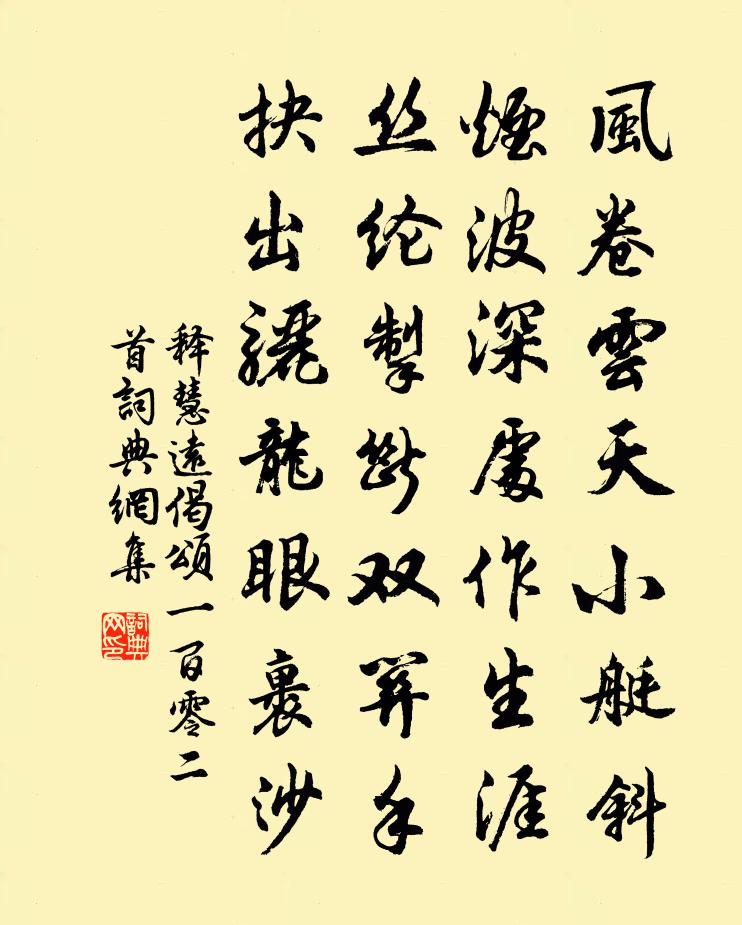 風卷雲天小艇斜
煙波深處作生涯
丝纶掣断双開手
抉出驪龍眼裏沙
释慧遠偈頌一百零二
首詞典網集
詞典网印